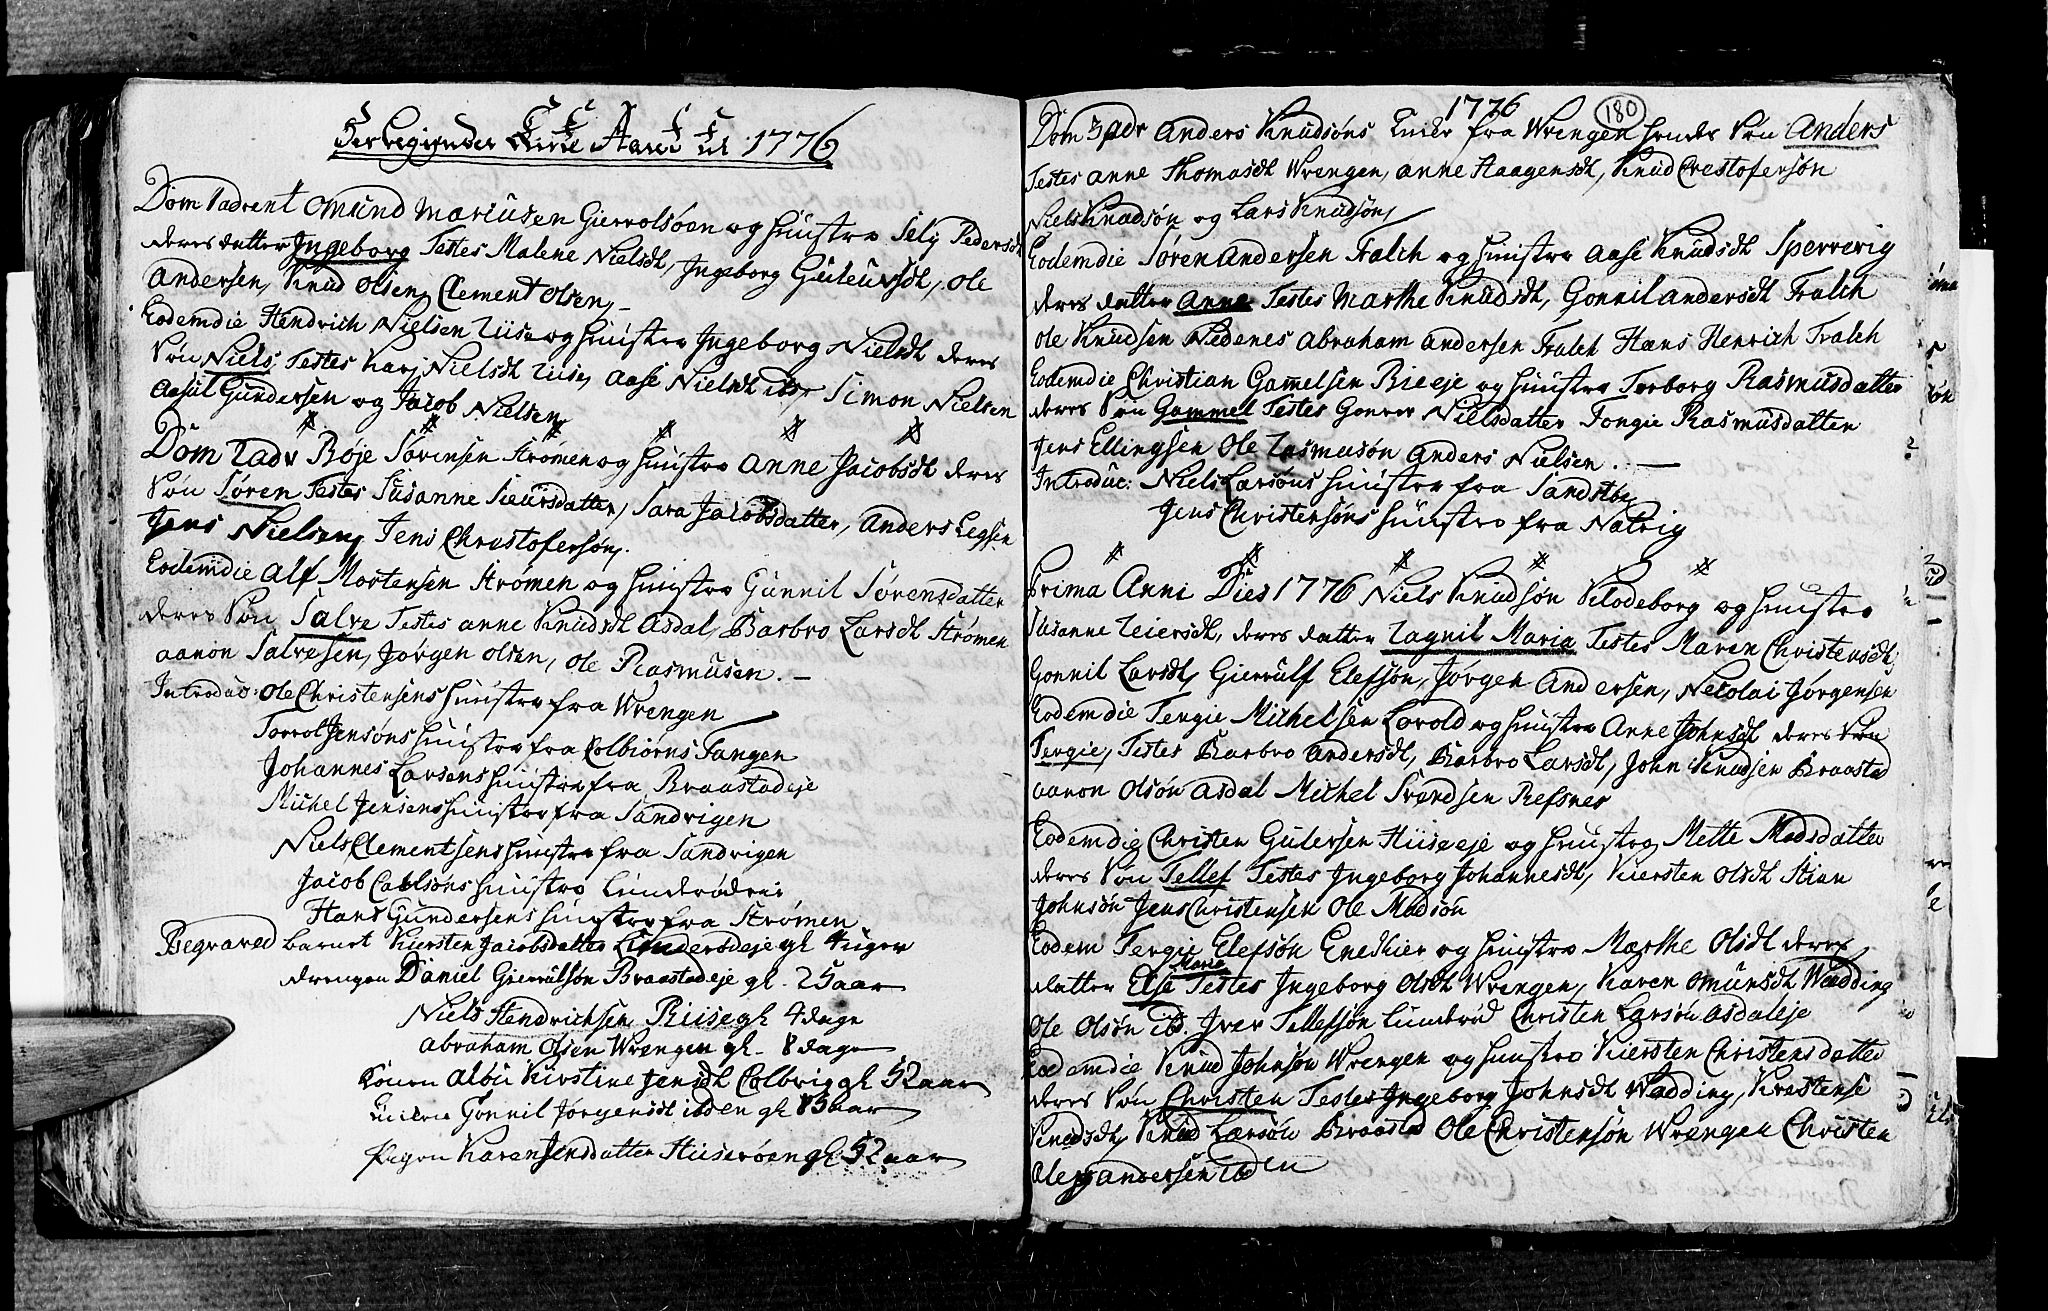 Her begynder Kirke Aaret til 1776
Dom 1 advent Omund Mariusen Gierrolsöen og hustro Selj Pedersdt
deres datter Ingeborg Testes Malene Nielsdt, Ingeborg Guteursdt, Ole
Andersen, Knud Olsen, Clement Olsen,
Eodemdie Hendrich Nielsen Riise og hustro Ingeborg Nielsdt deres
Søn Niels Testes Karj Nielsdt Riise, Aase Nielsdt ibd, Simon Nielsen
Aasul Gundersen og Jacob Nielsen
Dom 2 adv Røje Sörensen Strømen og hustro Anne Jacobsdt deres
Søn Søren Testes Susanne Siursdatter, Sara Jacobsdatter, Anders Legsen
Jens Nielsen, Jens Christofersøn.
Eodemdie Alf Mortensen Strømen og hustro Gunnil Sørensdatter
deres Søn Salve Testes Anne Knudsdt Asdal, Barbro Larsdt Strømen
Aanon Salvesen, Jørgen Olsen, Ole Rasmusen.
Introduc: Ole Christensens hustro fra Wrengen
Torrol Jensøns hustro fra Colbiørns Tangen
Johannes Larsens hustro fra Braastadeje
Michel Jensens hustro fra Sandvigen
Niels Clementsens hustro fra Sandvigen
Jacob Carlsøns hustro Lunderød
Hans Gundersens hustro fra Strømen
Begraved barnet Kiersten Jacobsdatter Lunderødeje gl 4 uger
drengen Daniel Gierrulsøn Braastadeje gl. 25 aar
Niels Hendrichsen Riise gl 4 dage
Abraham Olsen Wrengen gl. 8 dage
Konen Kirstine Jensdt Colbrig gl 52 aar
Enken Gonnil Jørgensdt ibden gl 83 aar
Pigen Karen Jensdatter Huserøen gl 52 aar
1776
180
Dom 3 adv Anders Knudsøns Encke fra Wrengen hendes Søn Anders
Testes Anne Thomasdt Wrengen, Anne Haagensdt, Knud Crestofersøn
Niels Knudsøn og Lars Knudsøn
Eodemdie Søren Andersen Fralch og hustro Aase Knudsdt Sperrevig
deres datter Anne Testes Marthe Knudsdt, Gonnil Andersdt Fralch
Ole Knudsen Nedenes Abraham Andersen Fralch Hans Henrich Fralch
Eodemdie Christian Gammelsen Bieeje og hustro Torborg Rasmusdatter
deres Søn Gammel Testes Gonnor Nielsdatter Tongie Rasmusdatter
Jens Ellingsen Ole Rasmusøn Anders Nielsen.
Introduc: Niels Larsøns hustro fra Sandstbe
Jens Christensøns hustro fra Natvig
Prima Anni Dies 1776 Niels Knudsøn Klodeborg og hustro
Susanne Reiersdt, deres datter Ragnil Maria Testes Maren Christensdt,
Gonnil Larsdt, Gierrulf Elefsøn, Jørgen Andersen, Nicolai Jørgensen
Eodemdie Tergie Michelsen Lovold og hustro Anne Johnsdt deres Søn
Tergie, Testes Barbro Andersdt, Barbro Larsdt, John Knudsen Braastad
Aanon Olsøn Asdal Michel Svendsen Refsnes
Eodemdie Christen Gutersen Huseeje og hustro Mette Madsdatter
deres Søn Tellef Testes Ingeborg Johannesdt, Kiersten Olsdt Stian
Johnsøn Jens Christensen Ole Madsøn
Eodem Tergie Elefsøn Enekier og hustro Marthe Olsdt deres
datter Else Maria Testes Ingeborg Olsdt Wrengen, Karen Omunsdt Wædding
Ole Olsøn ibd. Iver Tellefsøn Lunderød Christen Larsøn Asdaleje
Eodemdie Knud Johnsøn Wrengen og hustro Kiersten Christensdatter
deres Søn Christen Testes Ingeborg Johnsdt Wædding, Krestense
Knudsdt, Knud Larsøn Braastad Ole Christensøn Wrengen Christen
Andersen ibden